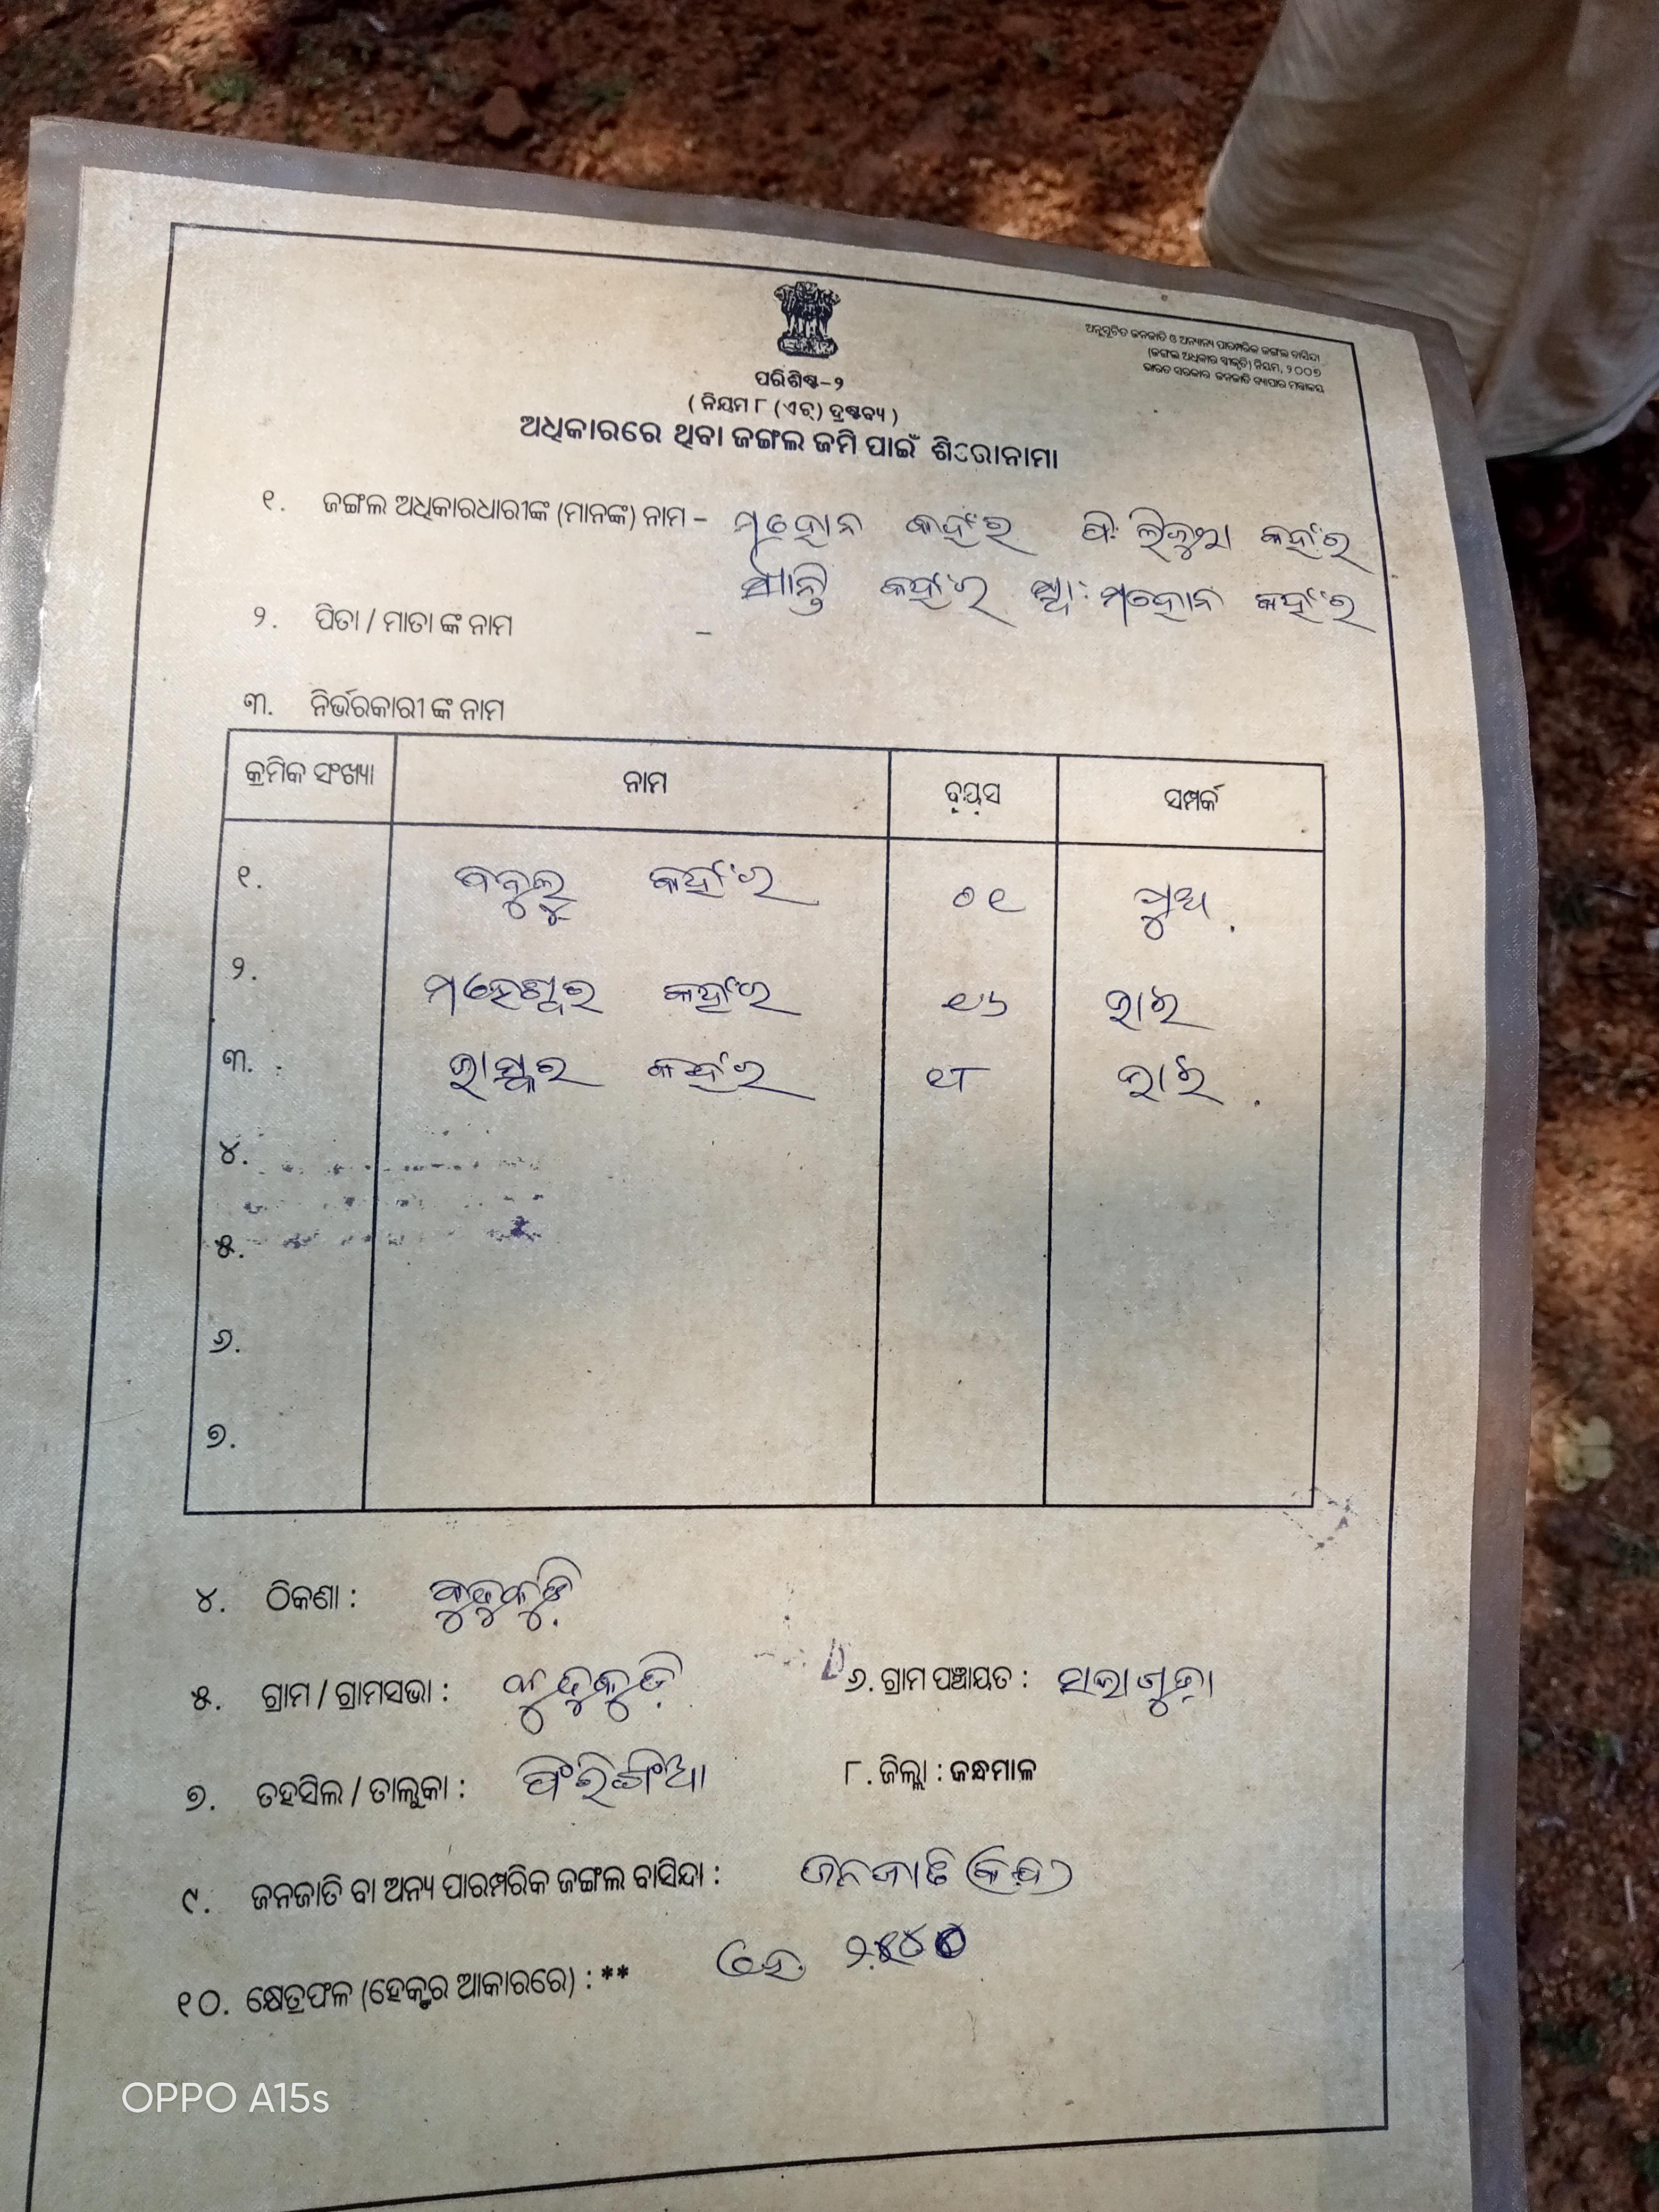 ଅନୁସୂଚିତ ଜନଜାତି ଓ ଅନ୍ୟାନ୍ୟ ପାରମ୍ପରିକ ଜଙ୍ଗଲ ବାସିନ୍ଦା
(ଜଙ୍ଗଲ ଅଧିକାର ସ୍ୱୀକୃତି) ନିୟମ, ୨୦୦୭
ଭାରତ ସରକାର ଜନଜାତି ବ୍ୟାପାର ମନ୍ତ୍ରାଳୟ
ପରିଶିଷ୍ଟ-୨
( ନିୟମ ୮ (ଏଚ୍) ଦ୍ରଷ୍ଟବ୍ୟ )
ଅଧିକାରରେ ଥିବା ଜଙ୍ଗଲ ଜମି ପାଇଁ ଶିରୋନାମା
୧. ଜଙ୍ଗଲ ଅଧିକାରଧାରୀଙ୍କ (ମାନଙ୍କ) ନାମ – ମହୋନ କହଁର ପି: କହଁର
ଶାନ୍ତି କହଁର ସ୍ୱା: ମହୋନ କହଁର
୨. ପିତା / ମାତା ଙ୍କ ନାମ –
୩. ନିର୍ଭରକାରୀ ଙ୍କ ନାମ
କ୍ରମିକ ସଂଖ୍ୟା ନାମ ବୟସ ସମ୍ପର୍କ
୧. ବବୁଲୁ କହଁର ୦୧ ପୁଅ
୨. ମହେଶ୍ୱର କହଁର ୧୬ ଭାଇ
୩. ଭାସ୍କର କହଁର ୧୮ ଭାଇ
୪.
୫.
୬.
୭.
୪. ଠିକଣା : କୁଦୁକୁଡ଼ି
୫. ଗ୍ରାମ / ଗ୍ରାମସଭା : କୁଦୁକୁଡ଼ି ୬. ଗ୍ରାମ ପଞ୍ଚାୟତ : ସଲାଗୁଡ଼ା
୭. ତହସିଲ / ତାଲୁକା : ଫିରିଙ୍ଗିଆ ୮. ଜିଲ୍ଲା : କନ୍ଧମାଳ
୯. ଜନଜାତି ବା ଅନ୍ୟ ପାରମ୍ପରିକ ଜଙ୍ଗଲ ବାସିନ୍ଦା : ଜନଜାତି (କନ୍ଧ)
୧୦. କ୍ଷେତ୍ରଫଳ (ହେକ୍ଟର ଆକାରରେ) : ** ହେ.
OPPO A15s